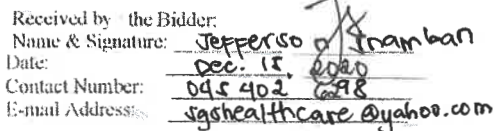 Received by the Bidder:
Name & Signature: Jefferso n Inamban
Date: Dec. 15, 2020
Contact Number: 045 402 6298
E-mail Address: sgshealthcare@yahoo.com